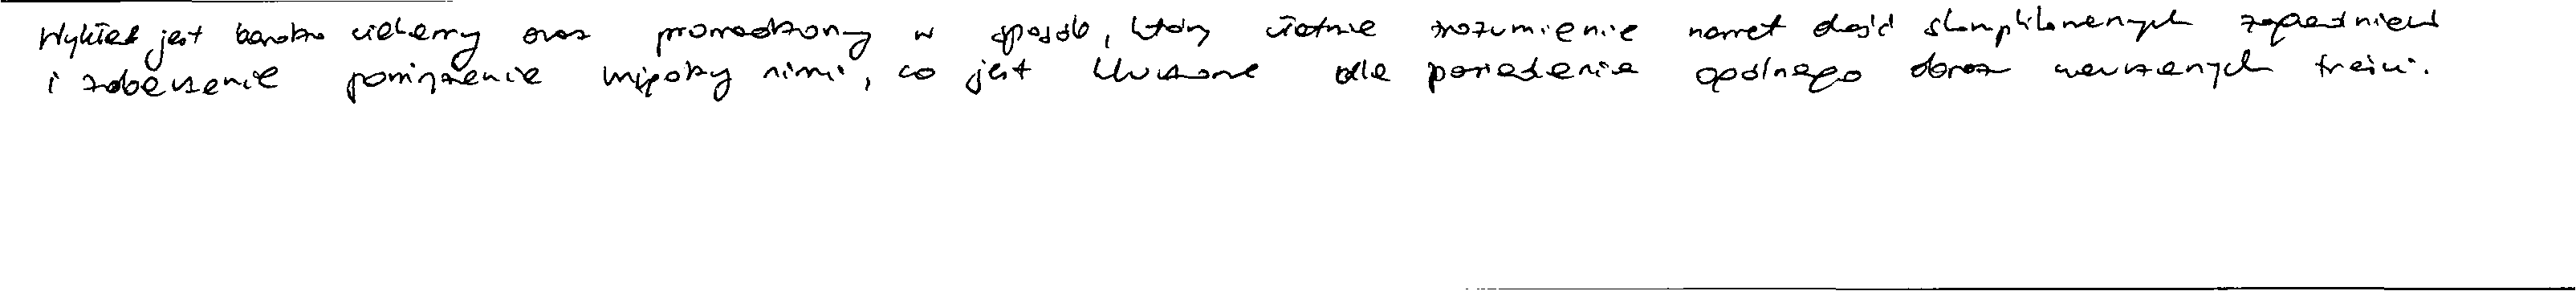 Wykład jest bardzo ciekawy oraz prowadzony w sposób, który ułatwia zrozumienie nawet dość skomplikowanych zagadnień
i zobaczenie powiązania między nimi, co jest kluczowe dla posiadania ogólnego obrazu nauczanych treści.